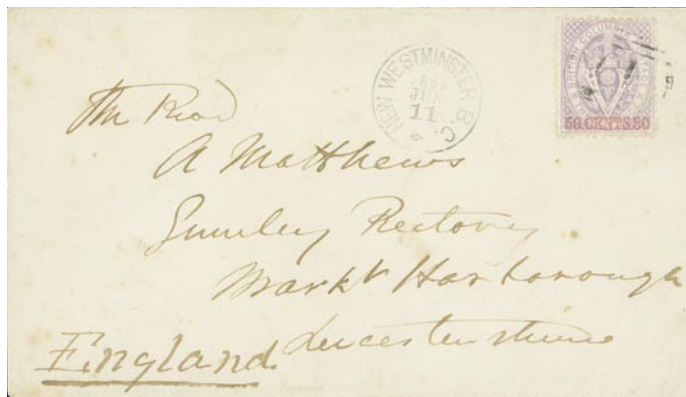 NEW WESTMINSTER B.C.
JUN
11
BRITISH COLUMBIA
50.CENTS.50
The Revd
A Matthews
Gumley Rectory
Markt Harborough
Leicestershire
England